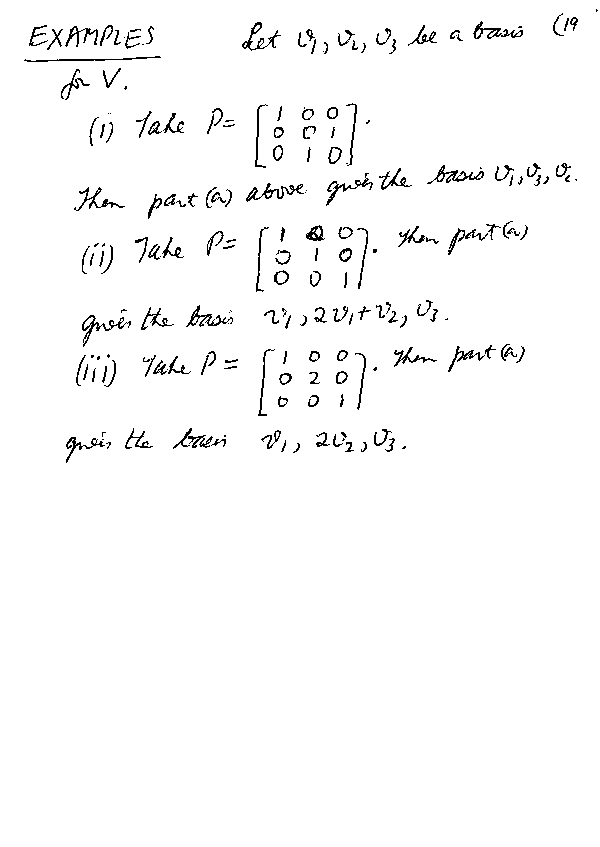 EXAMPLES Let v₁, v₂, v₃ be a basis (19
for V.
(i) Take P = [1 0 0
0 0 1
0 1 0].
Then part (a) above gives the basis v₁, v₃, v₂.
(ii) Take P = [1 0
0 1 0
0 0 1]. Then part (a)
gives the basis v₁, 2v₁ + v₂, v₃.
(iii) Take P = [1 0 0
0 2 0
0 0 1]. Then part (a)
gives the basis v₁, 2v₂, v₃.